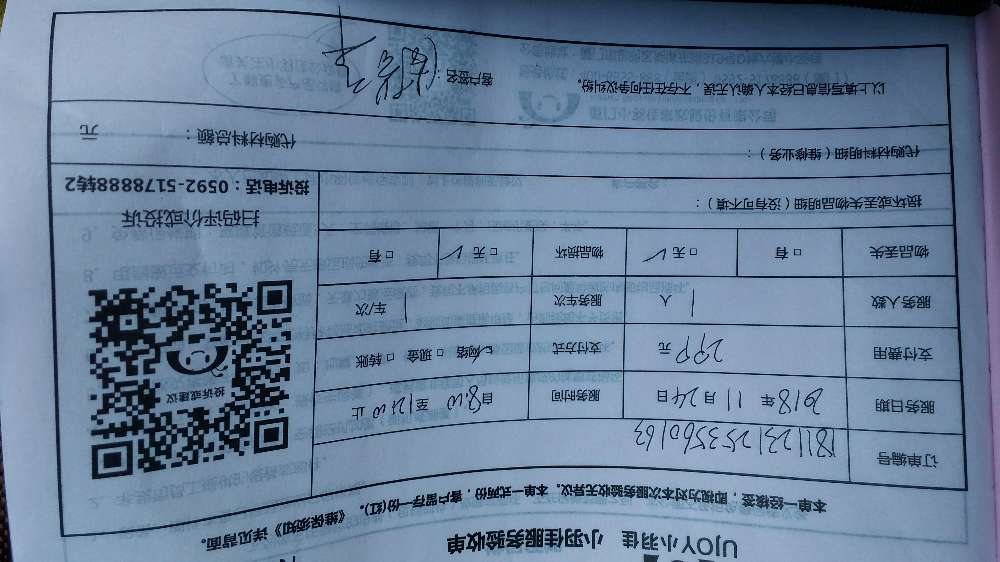 UJOY小羽佳 小羽佳服务验收单
本单一经核签，即视为对本次服务验收无异议。本单一式两份，客户留存一份(红)。《维保须知》详见背面。
订单编号 1811231253560163
服务日期 2018年11月24日 服务时间 自8:00至12:00止
支付费用 299元 支付方式 ☑网络 □现金 □转账
服务人数 1人 服务车次 车/次
物品丢失 □有 □无✓ 物品损坏 □无✓ □有
投诉或建议
扫码评价或投诉
投诉电话：0592-5178888转2
损坏或丢失物品明细（没有可不填）：
代购材料明细（维修业务）：
代购材料总额： 元
以上填写信息已经本人确认无误，不存在任何争议纠纷。 客户签名：